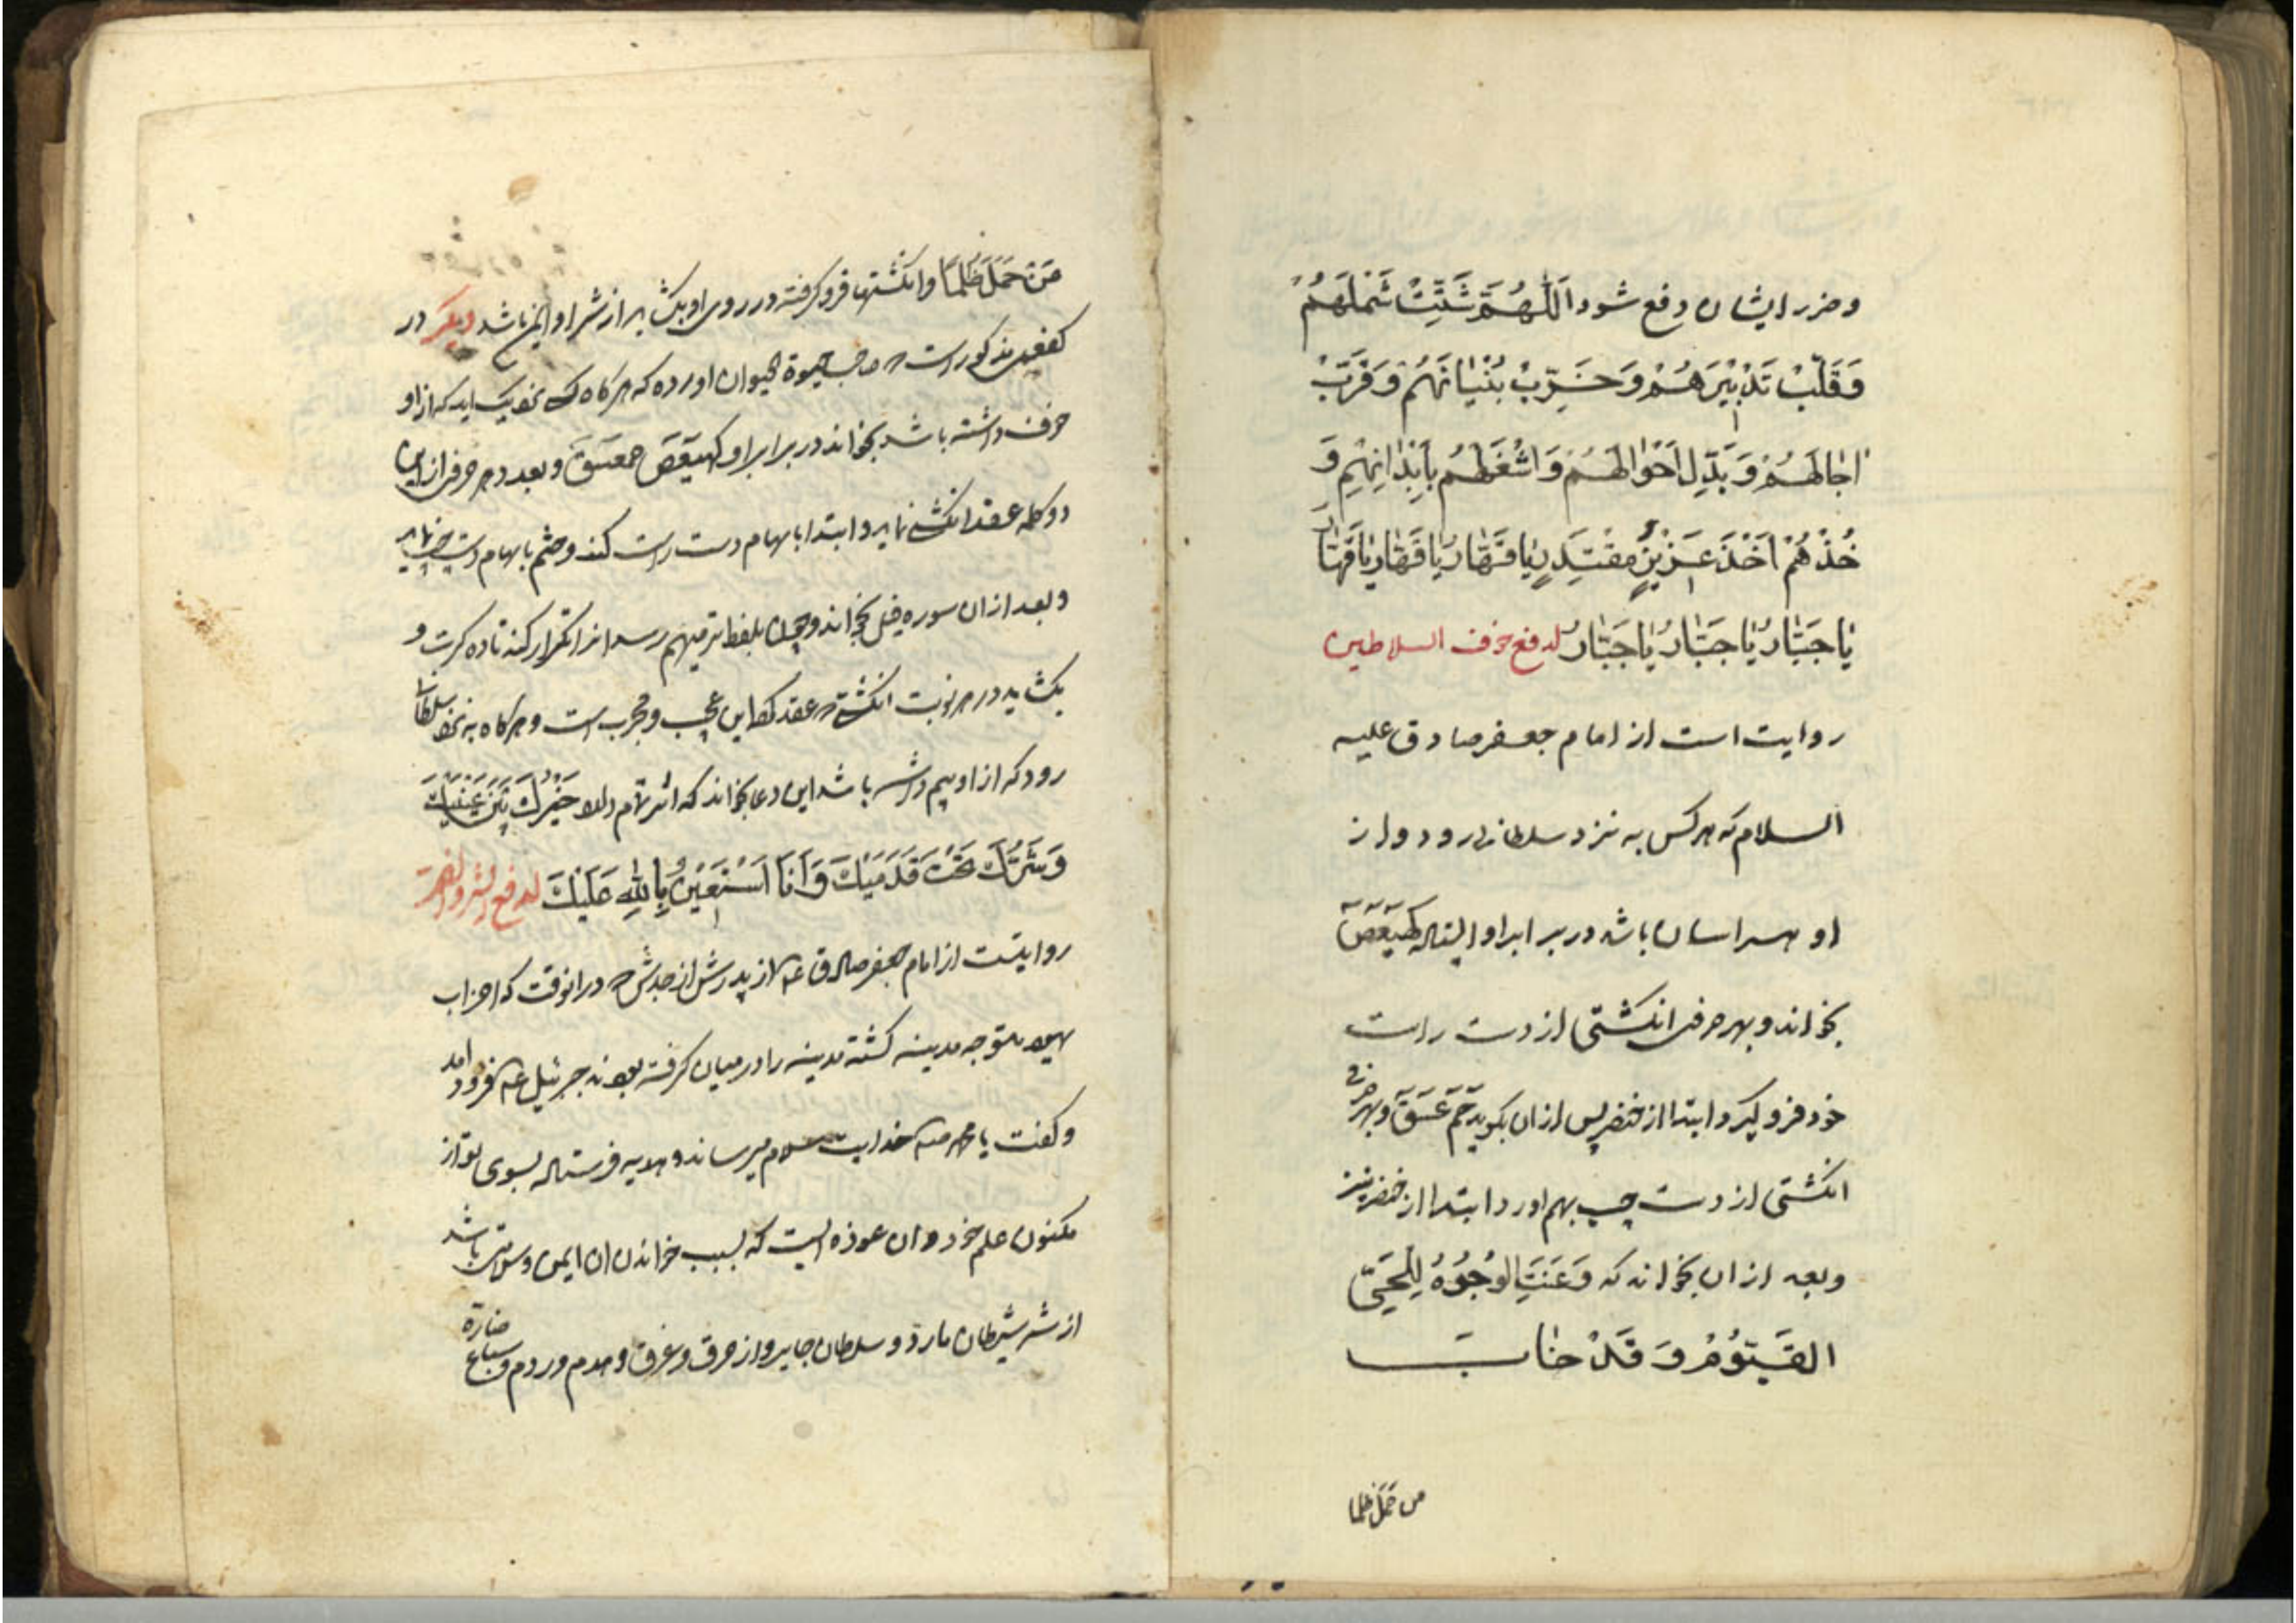 وضرر ایشان دفع شود اَللّهُمَّ شَتِّتْ شَمْلَهُمْ
وَقَلِّبْ تَدْبِیْرَهُمْ وَخَرِّبْ بُنْیٰانَهُمْ وَقَرِّبْ
اٰجالَهُمْ وَبَدِّلْ اَحْوٰالَهُمْ وَاشْغَلْهُمْ بِاَبْدٰانِهِمْ وَ
خُذْهُمْ اَخْذَ عَزِیْزٍ مُقْتَدِرٍ یٰا قَهّٰارُ یٰا قَهّٰارُ یٰا قَهّٰارُ
یٰا جَبّٰارُ یٰا جَبّٰارُ یٰا جَبّٰارُ لدفع خوف السلاطین
روایت است از امام جعفر صادق علیه
السلام که هر کس به نزد سلطانی رود و از
او هراسان باشد در برابر او ایستاده کهیعص
بخواند و بهر حرفی انکشتی از دست راست
خود فرو کیرد و ابتدا از خنصر پس ازان بکوید حم عسق و بهر حرفی
انکشتی از دست چپ بهم اورد و ابتدا از خنصر نیز
و بعد ازان بخواند که وَعَنَتِ الوُجُوهُ لِلْحَیِّ
القَیُّوْمِ وَقَدْ خٰابَ
من حمل ظلما
مَنْ حَمَلَ ظُلْمًا وانکشتها فرو کرفته در روی او بکشاید از شر او ایمن باشد دیکر در
کفعمی مذکور است صاحب حیوة الحیوان اورده که هر کاه کسی نزدیک اید که از او
خوف داشته باشد بخواند در برابر او کهیعص حمعسق و بعدد هر حرفی از این
دو کلمه عقد انکشت نماید و ابتدا بابهام دست راست کند و ختم بابهام دست چپ نماید
و بعد ازان سوره فیل بخواند و چون بلفظ ترمیهم رسد انرا تکرار کند تا ده کرت و
بکشاید در هر نوبت انکشتی عقد که این عجب و مجرب است و هرکاه به نزد سلطان
رود که از او بیم داشته باشد این دعا بخواند که اثر تمام دارد خَیْرُكَ بَیْنَ عَیْنَیْكَ
وَشَرُّكَ تَحْتَ قَدَمَیْكَ وَاَنَا اَسْتَعِیْنُ بِاللهِ عَلَیْكَ لدفع الشر والضر
روایتست از امام جعفر صادق ع از پدرش از جدش در انوقت که احزاب
یهود متوجه مدینه کشته مدینه را در میان کرفته بودند جبرئیل ع فرود امد
و کفت یا محمد خدایت سلام میرساند و هدیه فرستاده بسوی تو از
مکنون علم خود وان عوذه ایست که بسبب خواندن ان ایمن باشد
از شر شیطان مارد و سلطان جایر و از حرق و غرق و هدم و ردم و سباع ضارة